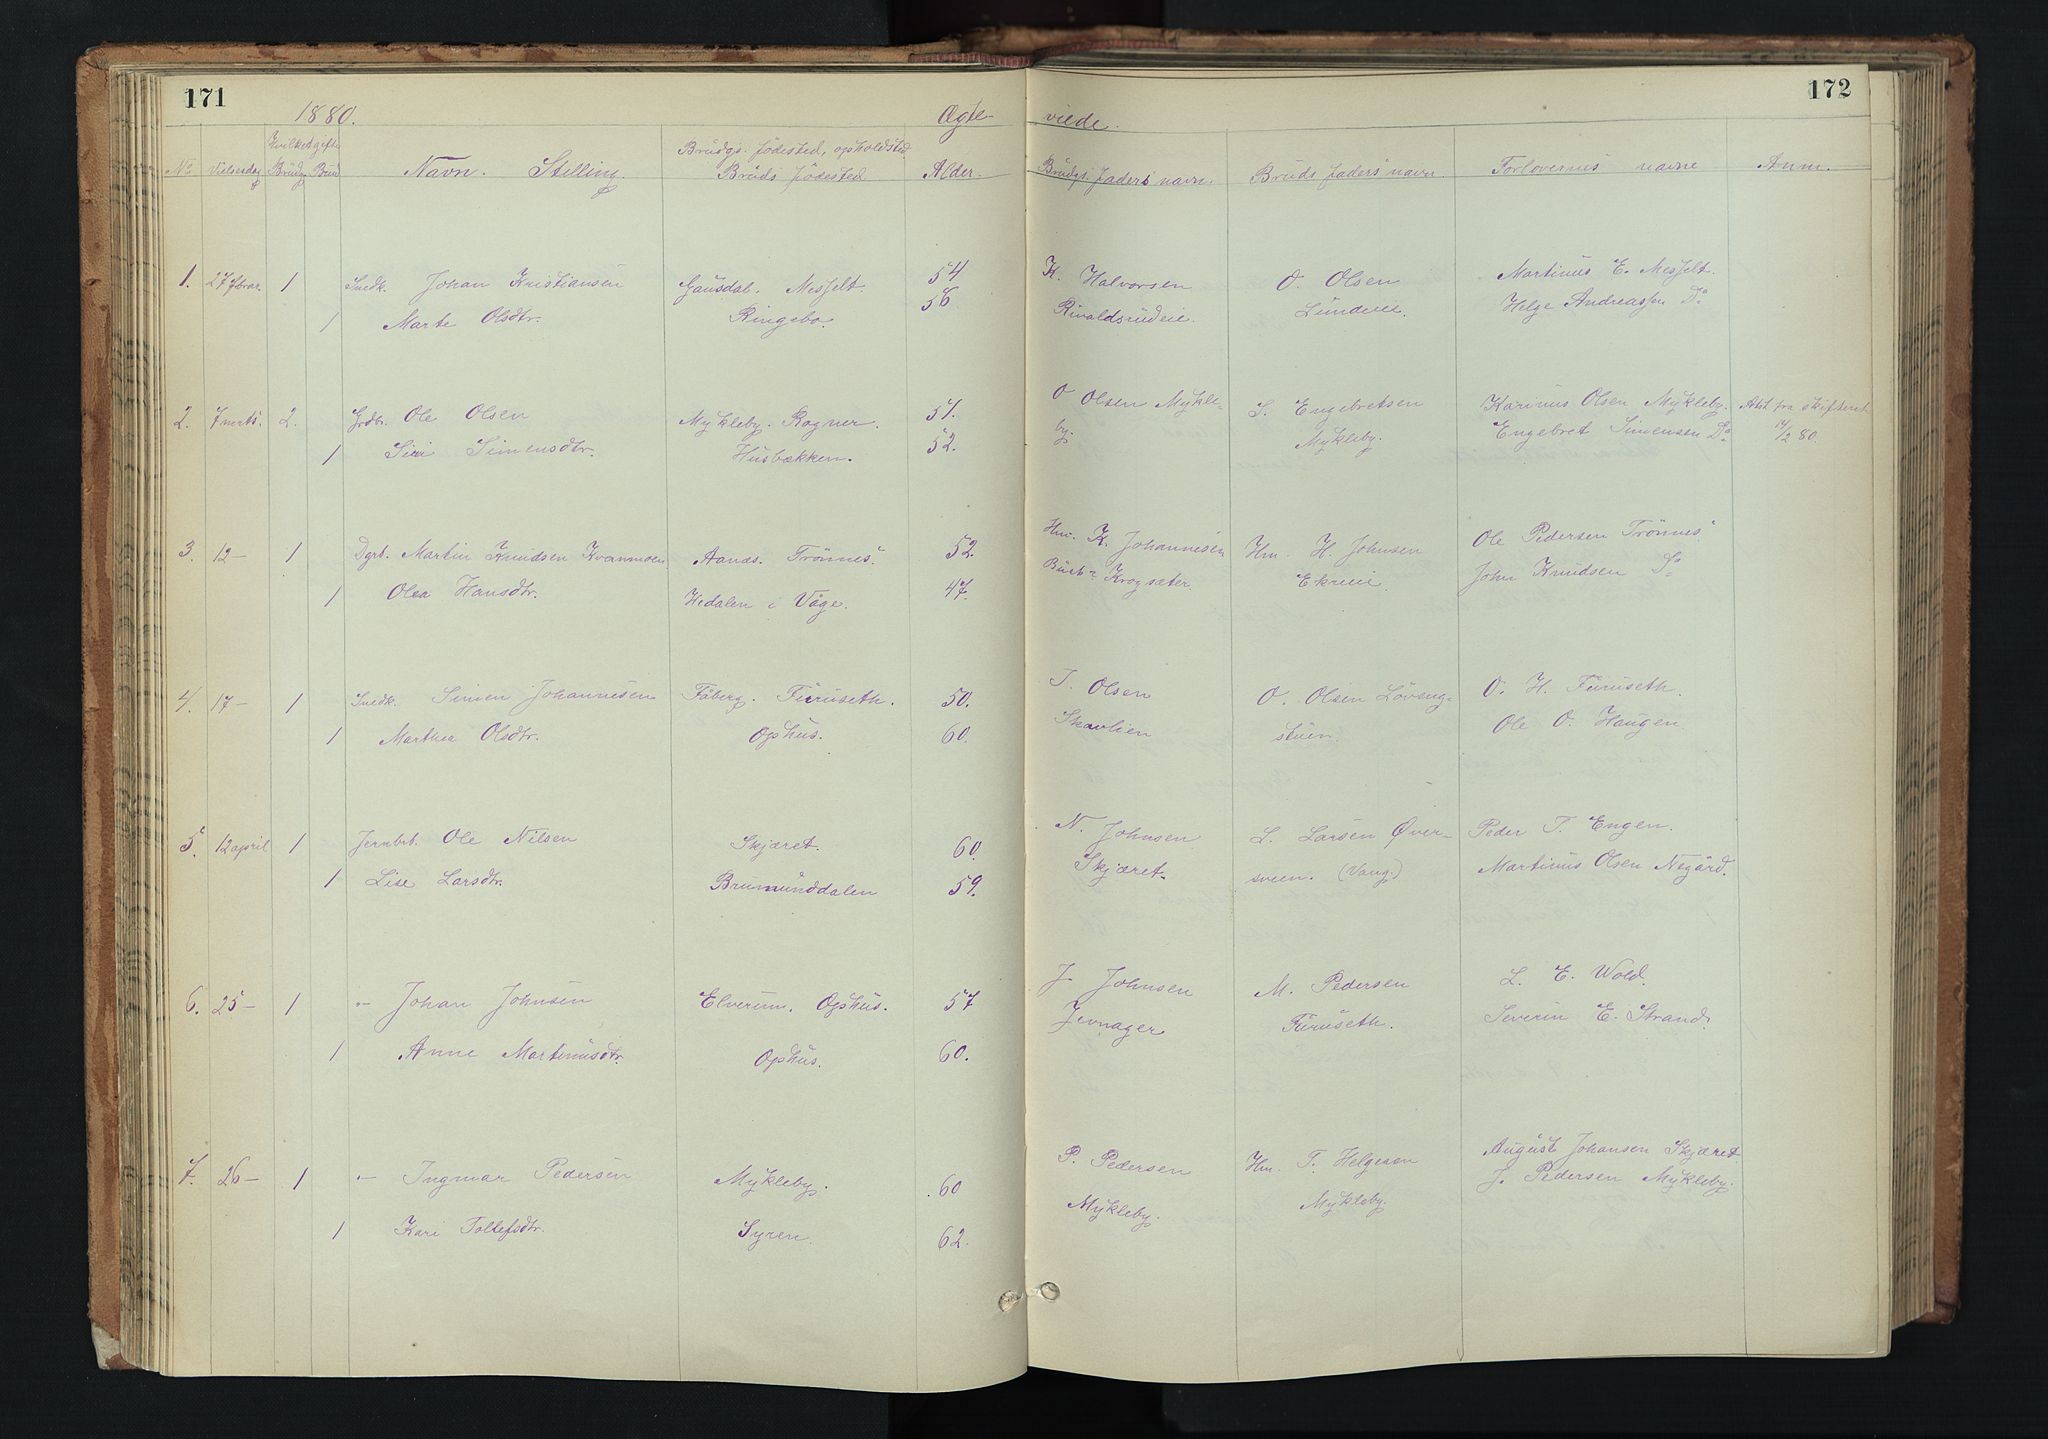 171
172
1880.
Ægte-
viede.
No Vielsesdag Hvilket gifte Brudg. Brud Navn. Stilling. Brudgs. fødested, opholdsted Bruds fødested Alder. Brudgs. faders navn. Bruds faders navn. Forlovernes navne Anm.
1. 27 fbrar. 1 Snedk. Johan Kristiansen Gausdal. Messelt. 54 K. Halvorsen O. Olsen Martinus E. Messelt.
1 Marte Olsdtr. Ringebo. 56 Rivaldsrudeie. Lundeie. Helge Andreassen Do
2. 7 mrts. 2. Grdbr. Ole Olsen Mykleby. Kogner. 51. O Olsen Mykle- S. Engebretsen Karinus Olsen Mykleby. Atst fra skifteret
1 Siri Simensdtr. Husbækken. 52. by. Mykleby. Engebret Simensen Do 14/2 80.
3. 12 - 1 Dgrb. Martin Knudsen Kvanmoen Aanes. Trønnes. 52. Hm. K. Johannesen Hm. H. Johnsen Ole Pedersen Trønnes.
1 Olea Hansdtr. Hedalen i Våge. 47. Krogsæter Ekreeie John Knudsen Do
4. 17 - 1 Snedk. Simen Johannesen Fåberg. Furuseth. 50. J. Olsen O. Olsen Løveng- O. H. Furuseth.
1 Marthea Olsdtr. Ophus. 60. Skarlien stuen. Ole O. Haugen
5. 12 april 1 Jernbrt. Ole Nilsen Skjæret. 60. N. Johnsen L. Larsen Øver- Peder T. Engen.
1 Lise Larsdtr. Brumunddalen 59. Skjæret. sveen. (Vang.) Martinus Olsen Negård.
6. 25 - 1 -"- Johan Johnsen Elverum. Ophus. 57 J. Johnsen M. Pedersen L. E. Wold.
1 Anne Martinusdtr. Ophus. 60. Jevnager Furuseth. Severin E. Strand.
7. 26 - 1 -"- Ingmar Pedersen Mykleby. 60 P. Pedersen Hm. T. Helgesen August Johansen Skjæret
1 Kari Tollefsdtr. Syren. 62. Mykleby. Mykleby. J. Pedersen Mykleby.